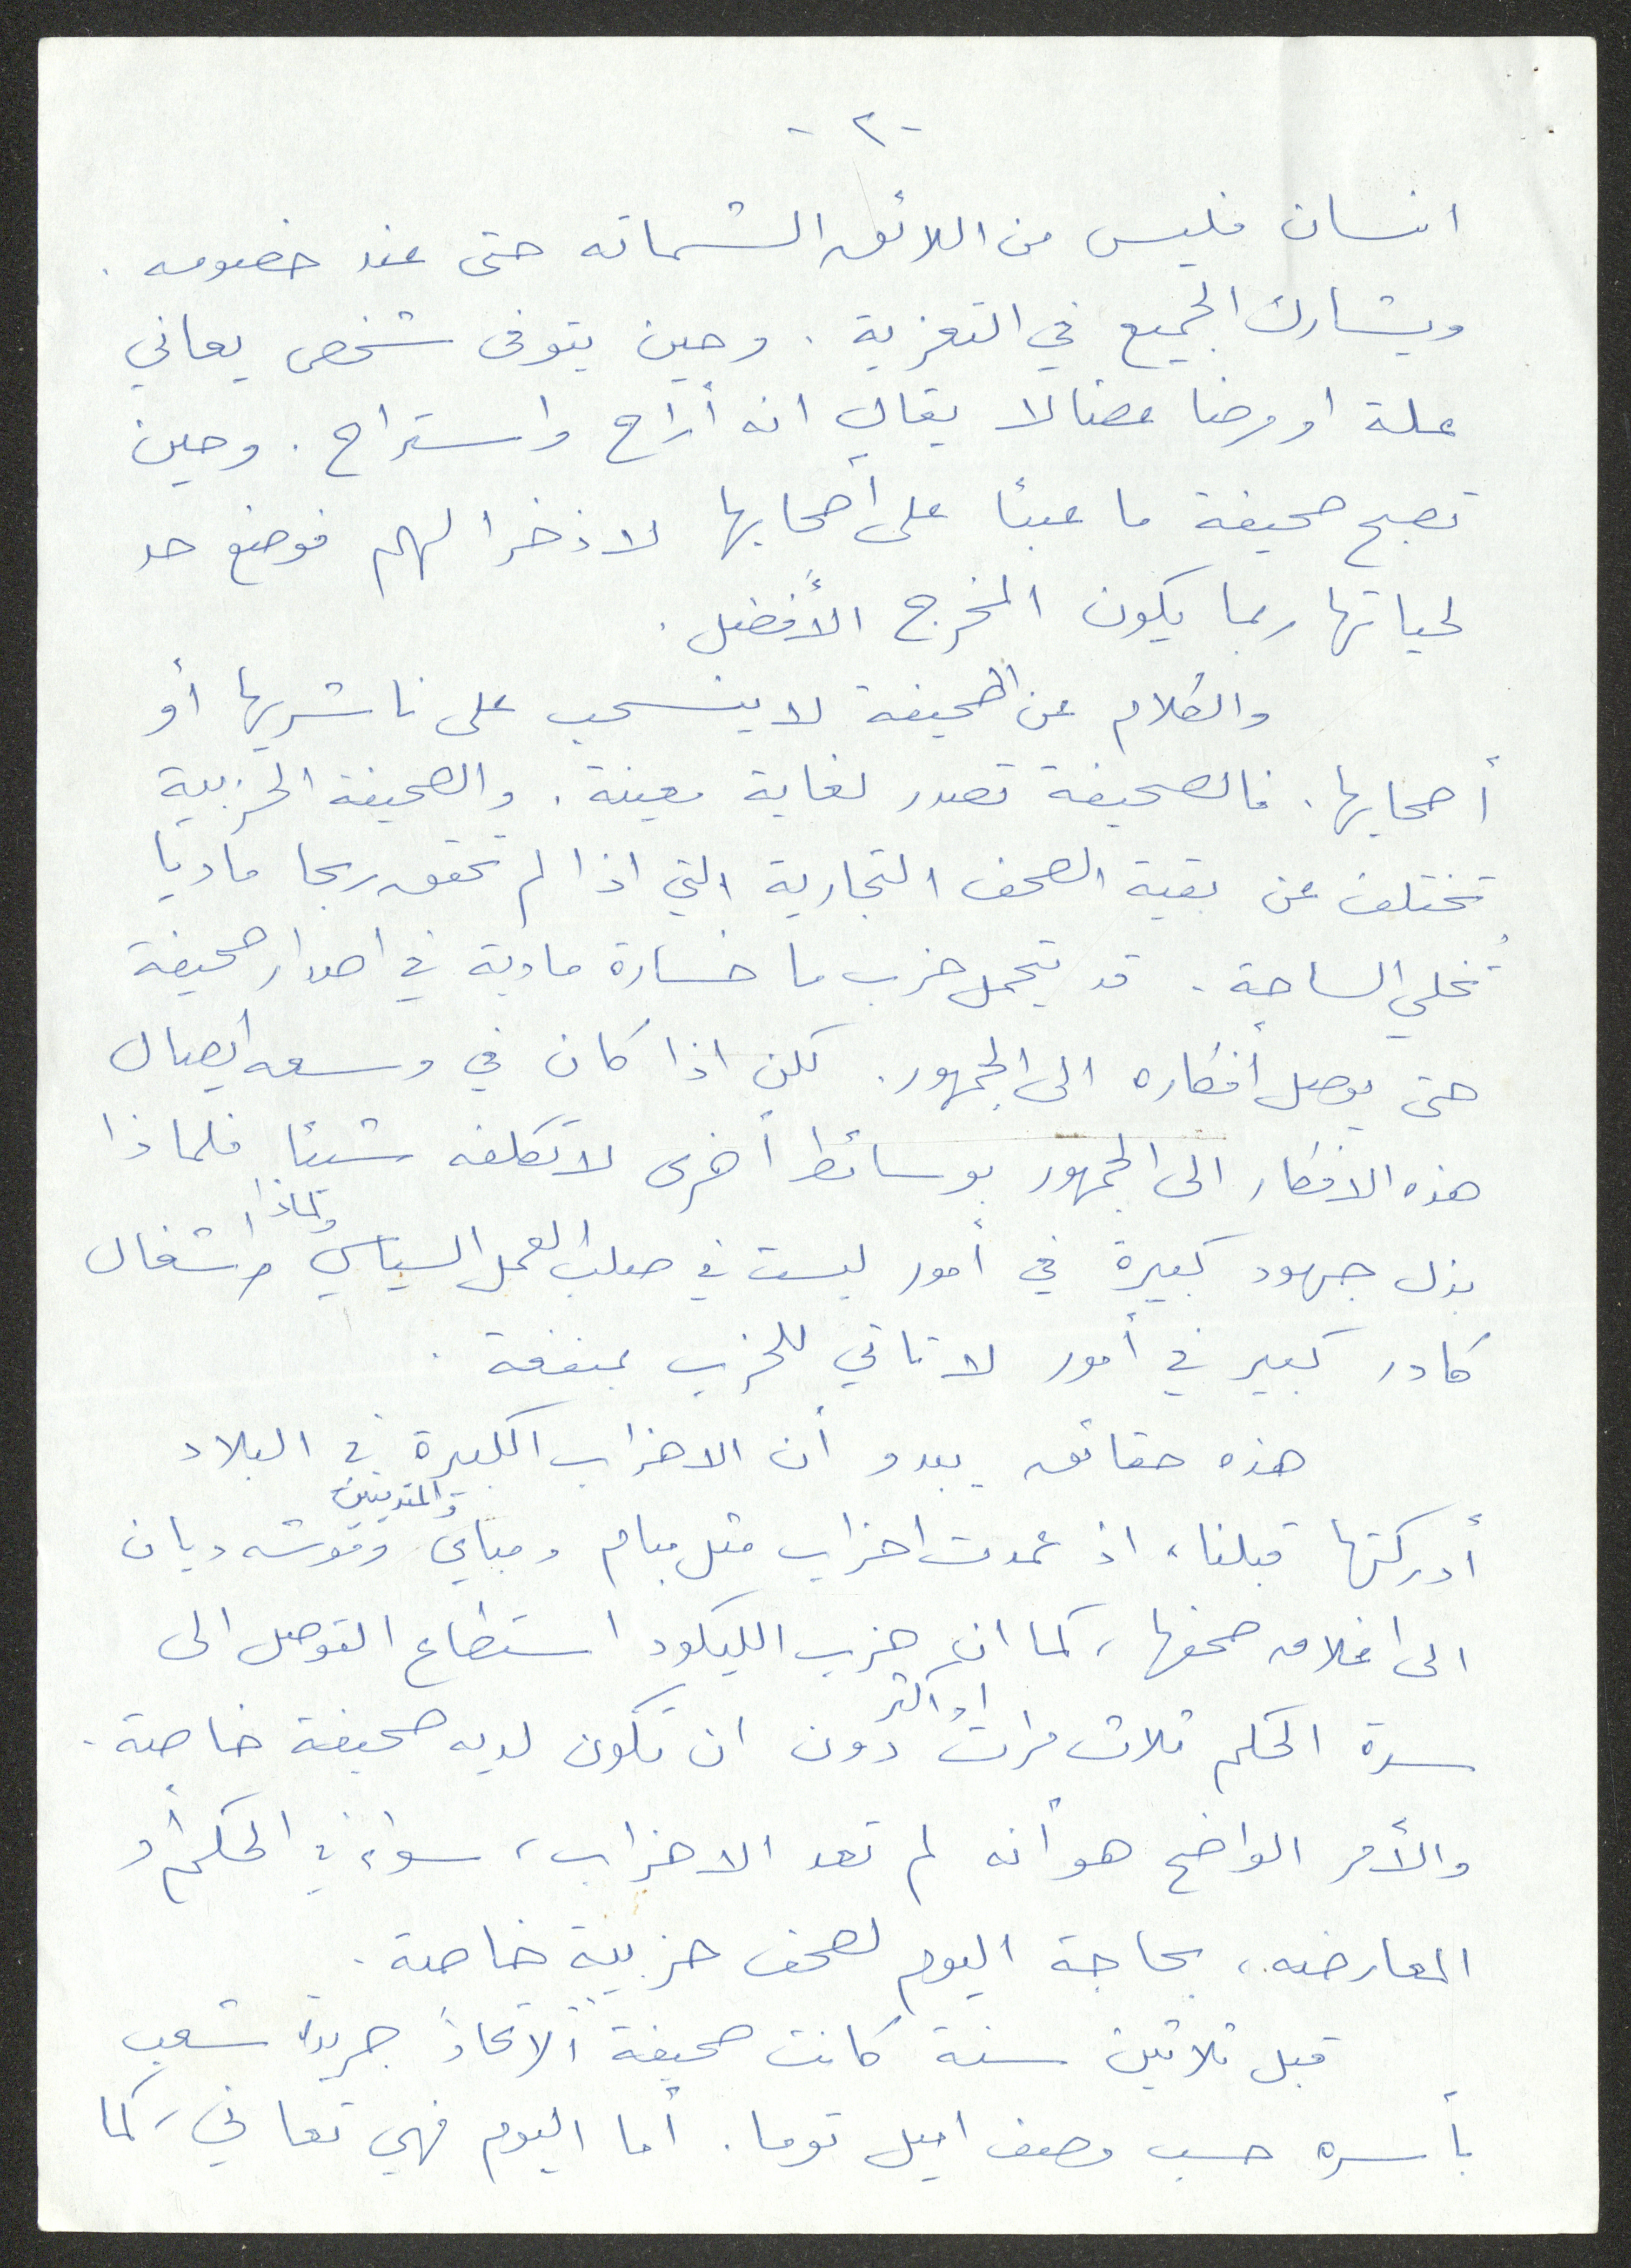 -٢-
انسان فليس من اللائق الشماته حتى عند خصومه .
ويشارك الجميع في التعزية . وحين يتوفى شخص يعاني
علة او مرضا عضالا يقال انه أراح واستراح . وحين
تصبح صحيفة ما عبئا على أصحابها لا ذخرا لهم فوضع حد
لحياتها ربما يكون المخرج الأفضل .
والكلام عن الصحيفة لا ينسحب على ناشريها أو
أصحابها . فالصحيفة تصدر لغاية معينة . والصحيفة الحزبية
تختلف عن بقية الصحف التجارية التي اذا لم تحقق ربحا ماديا
تُخلي الساحة . قد يتحمل حزب ما خسارة مادية في اصدار صحيفة
حتى يوصل أفكاره الى الجمهور . لكن اذا كان في وسعه ايصال
هذه الافكار الى الجمهور بوسائط أخرى لا تكلفه شيئا فلماذا
بذل جهود كبيرة في أمور ليست في صلب العمل السياسي ولماذا اشغال
كادر كبير في أمور لا تاتي للحزب بمنفعة .
هذه حقائق يبدو أن الاحزاب الكبيرة في البلاد
أدركتها قبلنا ، اذ عمدت احزاب مثل مبام ومباي والمتدينين وموشه ديان
الى اغلاق صحفها ، كما ان حزب الليكود استطاع التوصل الى
سدة الحكم ثلاث مرات او اكثر دون ان تكون لديه صحيفة خاصة .
والأمر الواضح هو أنه لم تعد الاحزاب ، سواء في الحكم أو
المعارضه ، بحاجة اليوم لصحف حزبية خاصة .
قبل ثلاثين سنة كانت صحيفة "الاتحاد" جريدة شعب
بأسره حسب وصف اميل توما . أما اليوم فهي تعاني ، كما